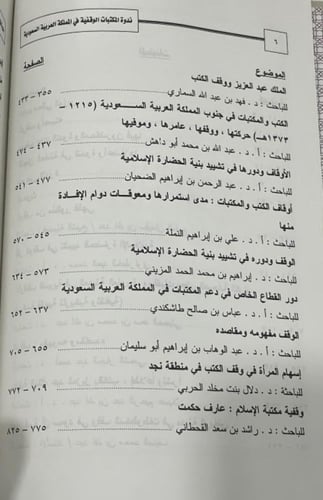 ندوة المكتبات الوقفية في المملكة العربية السعودية
٦
الموضوع
الصفحة
الملك عبد العزيز ووقف الكتب
للباحث : د . فهد بن عبد الله السماري ٣٥٥ – ٤٣٣
الكتب والمكتبات في جنوب المملكة العربية السعودية (١٢١٥ –
١٣٧٣هـ) حركتها ، ووقفها ، عامرها ، وموفيها
للباحث : أ . د . عبد الله بن محمد أبو داهش ٤٣٧ – ٤٧٤
الأوقاف ودورها في تشييد بنية الحضارة الإسلامية
للباحث : أ . د . عبد الرحمن بن إبراهيم الضحيان ٤٧٧ – ٥٤١
أوقاف الكتب والمكتبات : مدى استمرارها ومعوقات دوام الإفادة
منها
للباحث : أ . د . علي بن إبراهيم النملة ٥٤٥ – ٥٧٠
الوقف ودوره في تشييد بنية الحضارة الإسلامية
للباحث : د . إبراهيم بن محمد الحمد المزيني ٥٧٣ – ٦٣٤
دور القطاع الخاص في دعم المكتبات في المملكة العربية السعودية
للباحث : أ . د . عباس بن صالح طاشكندي ٦٣٧ – ٦٥٢
الوقف مفهومه ومقاصده
للباحث : أ . د . عبد الوهاب بن إبراهيم أبو سليمان ٦٥٥ – ٧٠٥
إسهام المرأة في وقف الكتب في منطقة نجد
للباحثة : د . دلال بنت مخلد الحربي ٧٠٩ – ٧٧٢
وقفية مكتبة الإسلام : عارف حكمت
للباحث : د . راشد بن سعد القحطاني ٧٧٥ – ٨٢٥